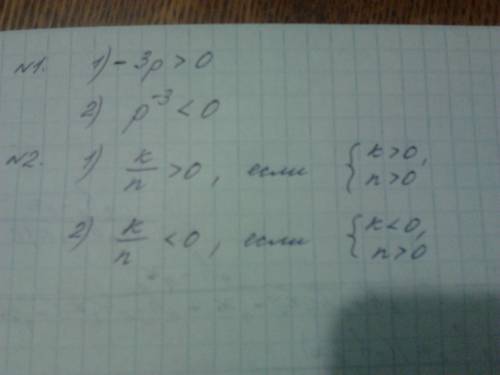 №1. 1) -3p > 0
2) p⁻³ < 0
№2. 1) k/n > 0, если { k>0, n>0
2) k/n < 0, если { k<0, n>0